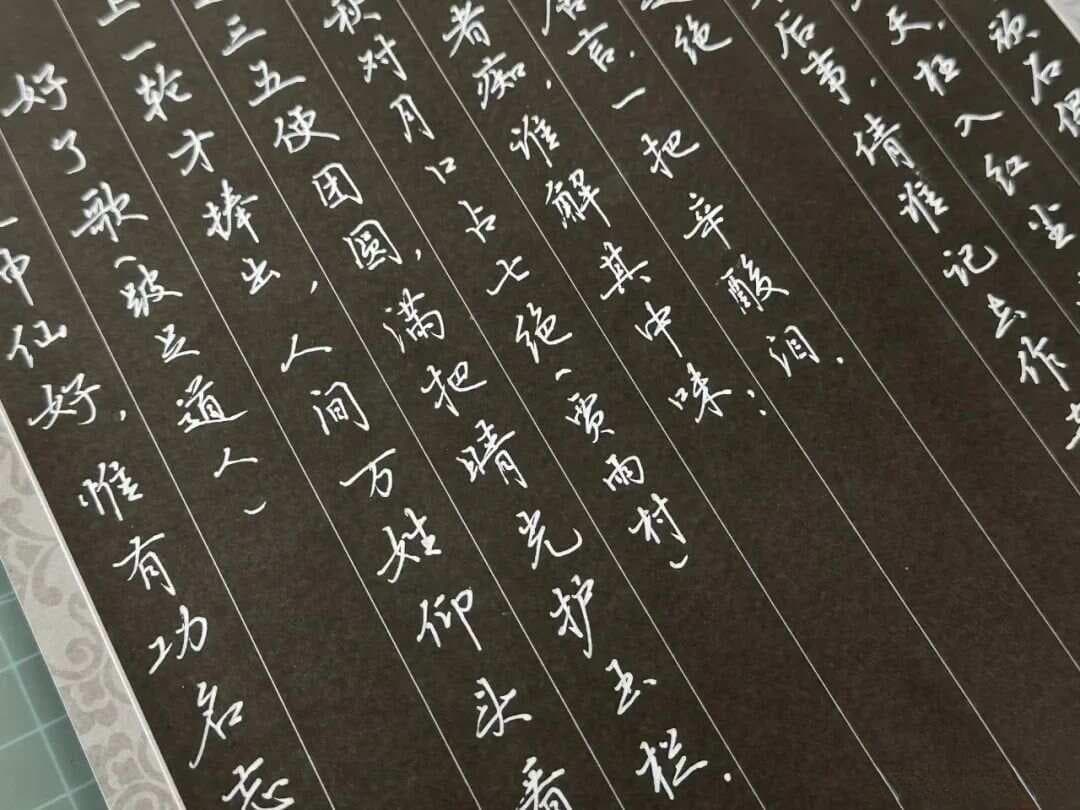 顽石偶
天，枉入红尘
后事，倩谁记去作
绝
言，一把辛酸泪。
者痴，谁解其中味？
对月口占七绝（贾雨村）
三五便团圆，满把晴光护玉栏。
上一轮才捧出，人间万姓仰头看
好了歌（跛足道人）
中仙好，惟有功名志